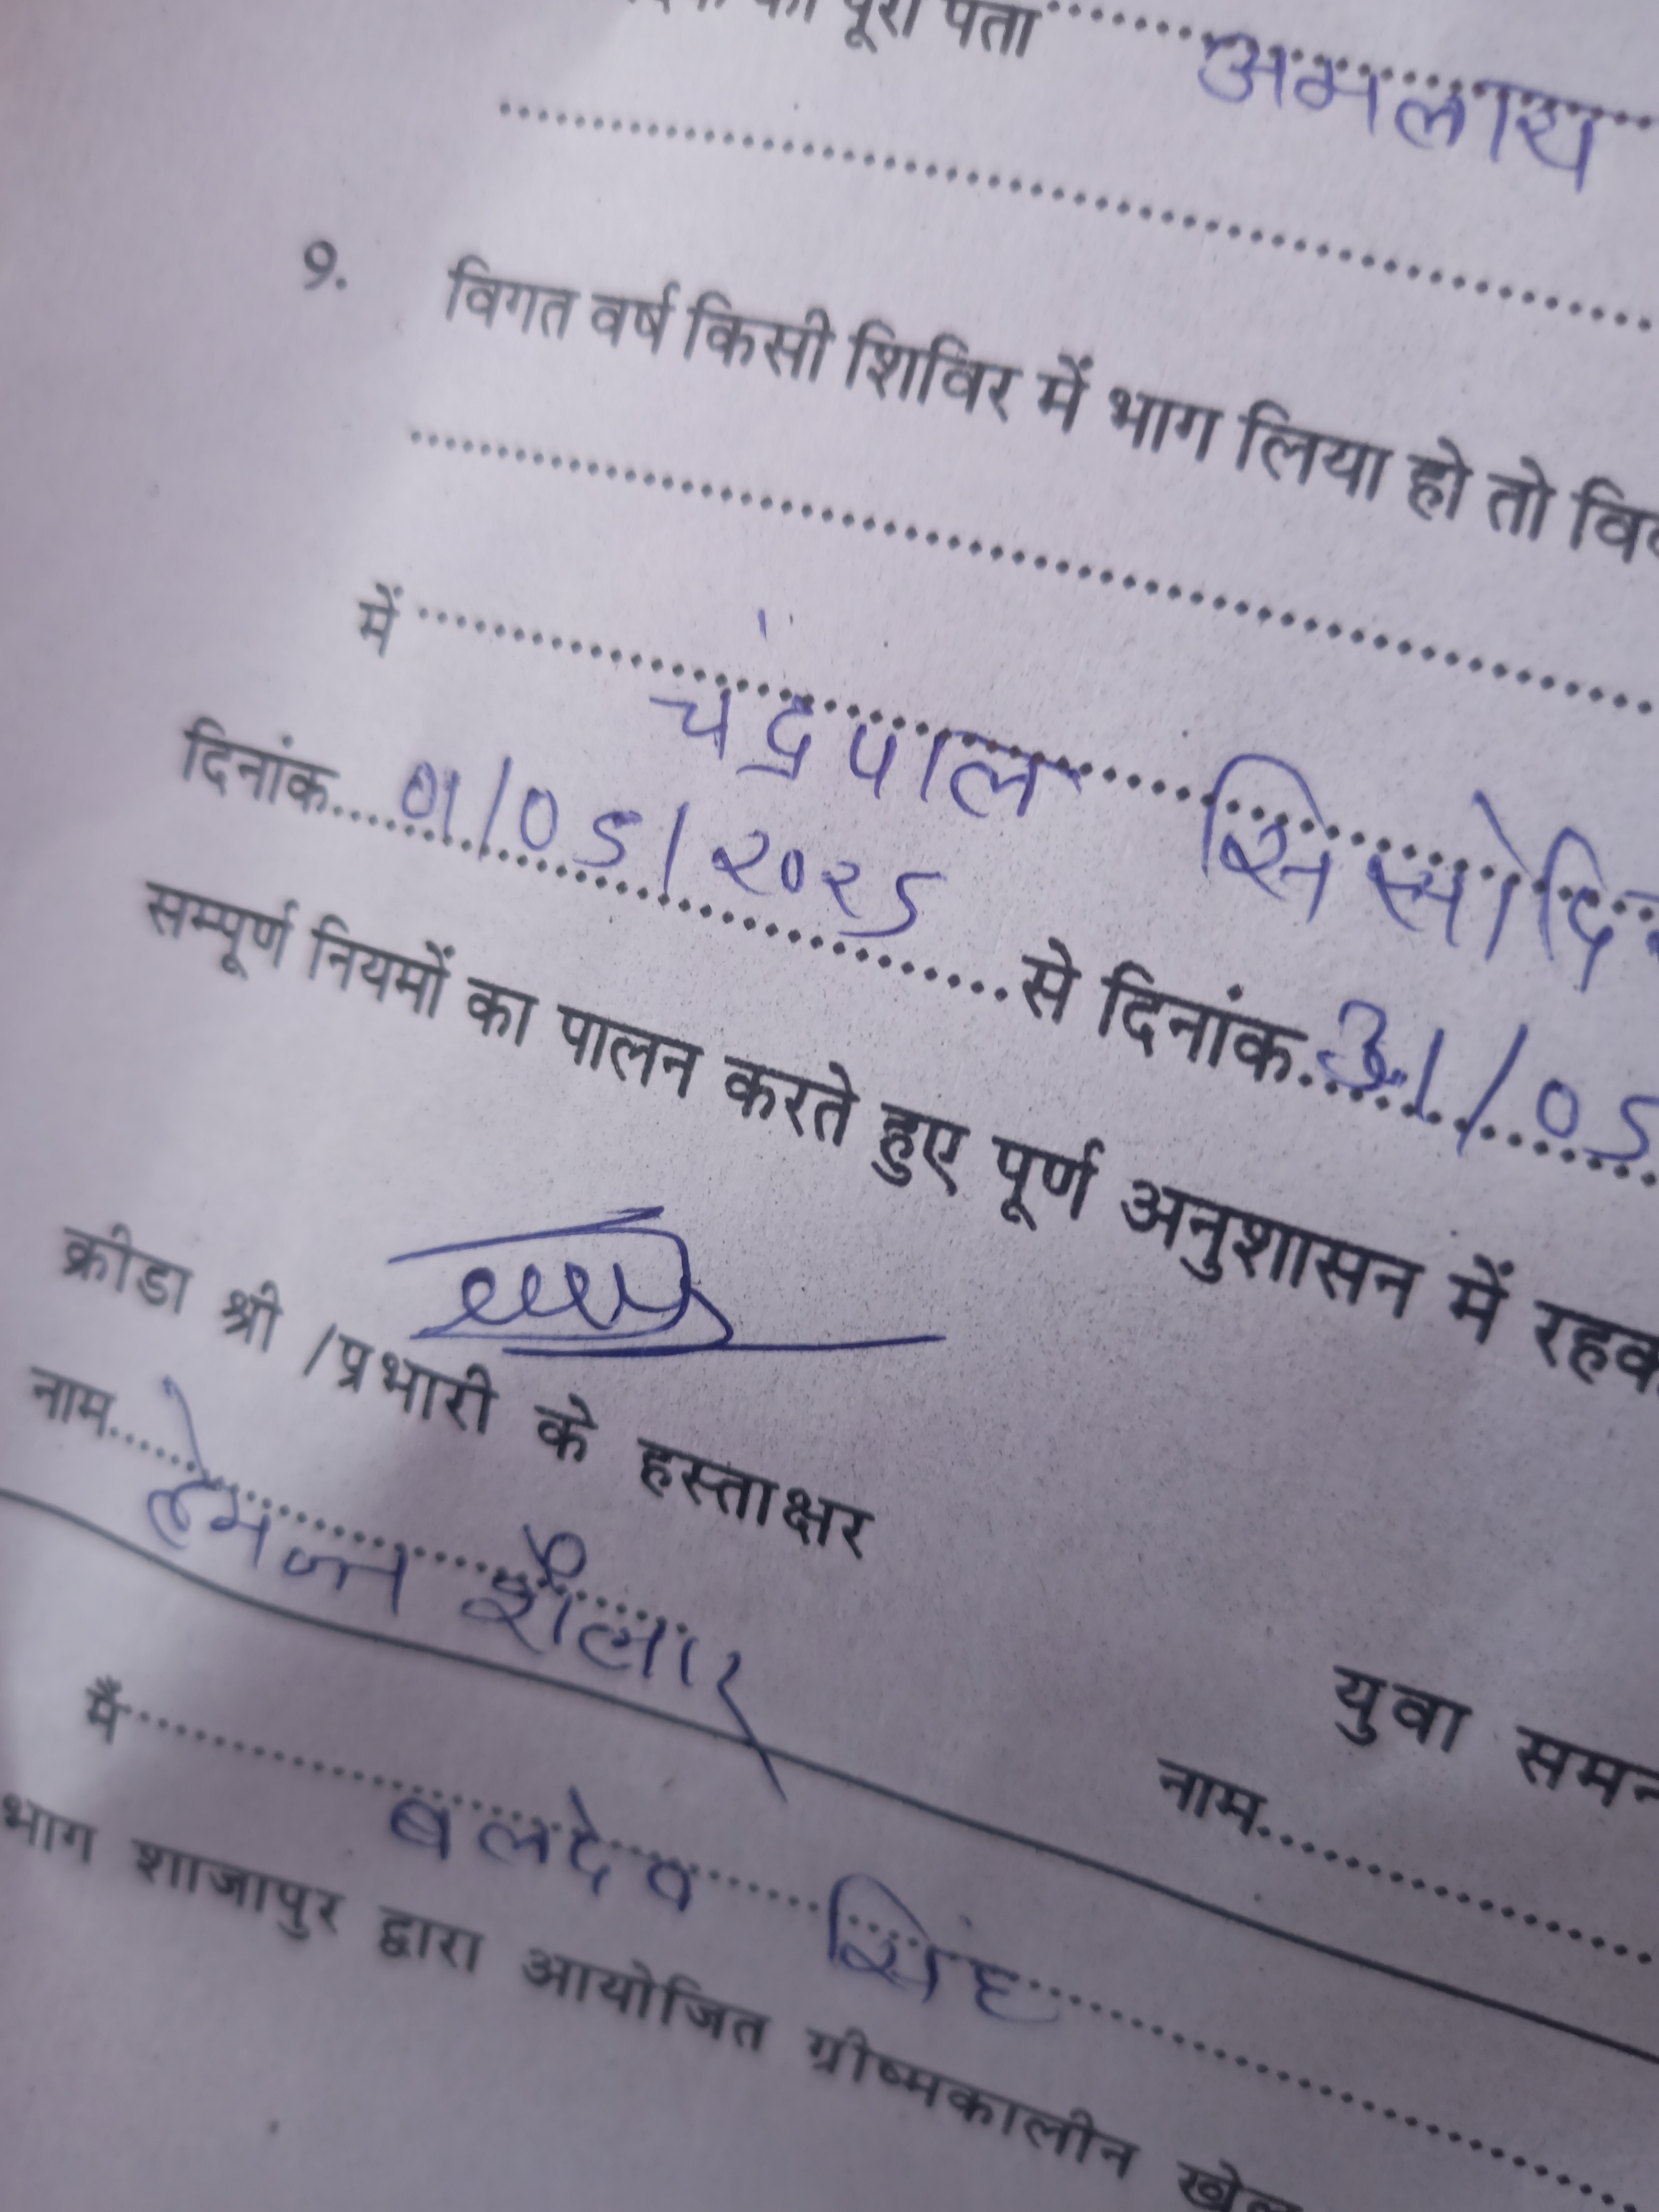 का पूरा पता अमलाय
9. विगत वर्ष किसी शिविर में भाग लिया हो तो
में चंद्रपाल सिसोदि
दिनांक 01/05/2025 से दिनांक 31/05
सम्पूर्ण नियमों का पालन करते हुए पूर्ण अनुशासन में
क्रीडा श्री /प्रभारी के हस्ताक्षर
नाम हेमन्त
युवा
नाम
मैं बलदेव सिंह
भाग शाजापुर द्वारा आयोजित ग्रीष्मकालीन